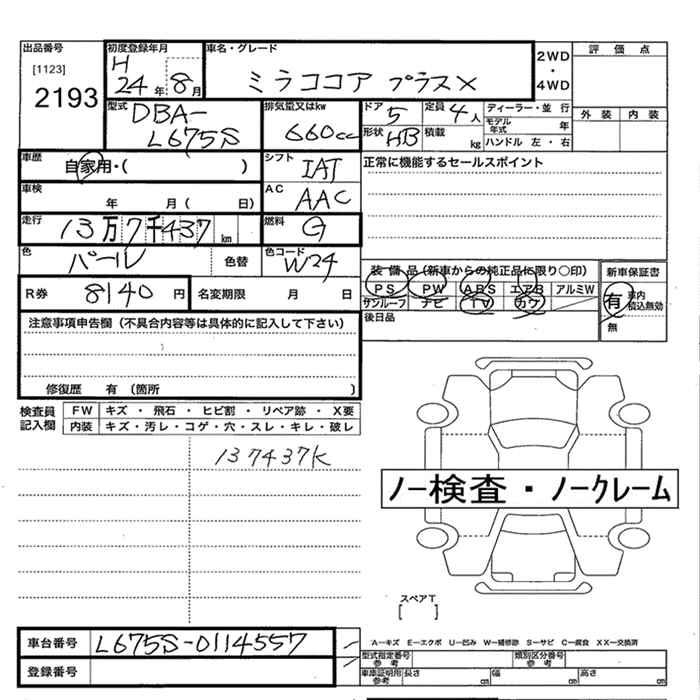 出品番号
[1123]
2193
初度登録年月
H
24年 8月
車名・グレード
ミラココア プラスX
2WD
・
4WD
評価点
外装 内装
型式
DBA-
L675S
排気量又はkw
660cc
ドア 5
定員 4人
ディーラー・並行
モデル年式 年
形状 HB
積載 kg
ハンドル 左・右
車歴
自家用・( )
シフト
IAT
正常に機能するセールスポイント
車検
年 月( 日)
AC
AAC
走行
13万7千437 km
燃料
G
色
パール
色替
色コード
W24
装備品(新車からの純正品に限り○印)
新車保証書
PS PW ABS エアB アルミW
サンルーフ ナビ TV カワ
有 車内積込無効
無
R券 8140円
名変期限 月 日
後日品
注意事項申告欄(不具合内容等は具体的に記入して下さい)
修復歴 有(箇所 )
検査員
記入欄
FW キズ・飛石・ヒビ割・リペア跡・X要
内装 キズ・汚レ・コゲ・穴・スレ・キレ・破レ
137437K
ノー検査・ノークレーム
スペアT
[ ]
車台番号 L675S-0114557
登録番号
A−キズ E−エクボ U−凹ミ W−補修跡 S−サビ C−腐食 XX−交換済
型式指定番号
参考
類別区分番号
参考
車庫証明用
参考
長さ cm 幅 cm 高さ cm